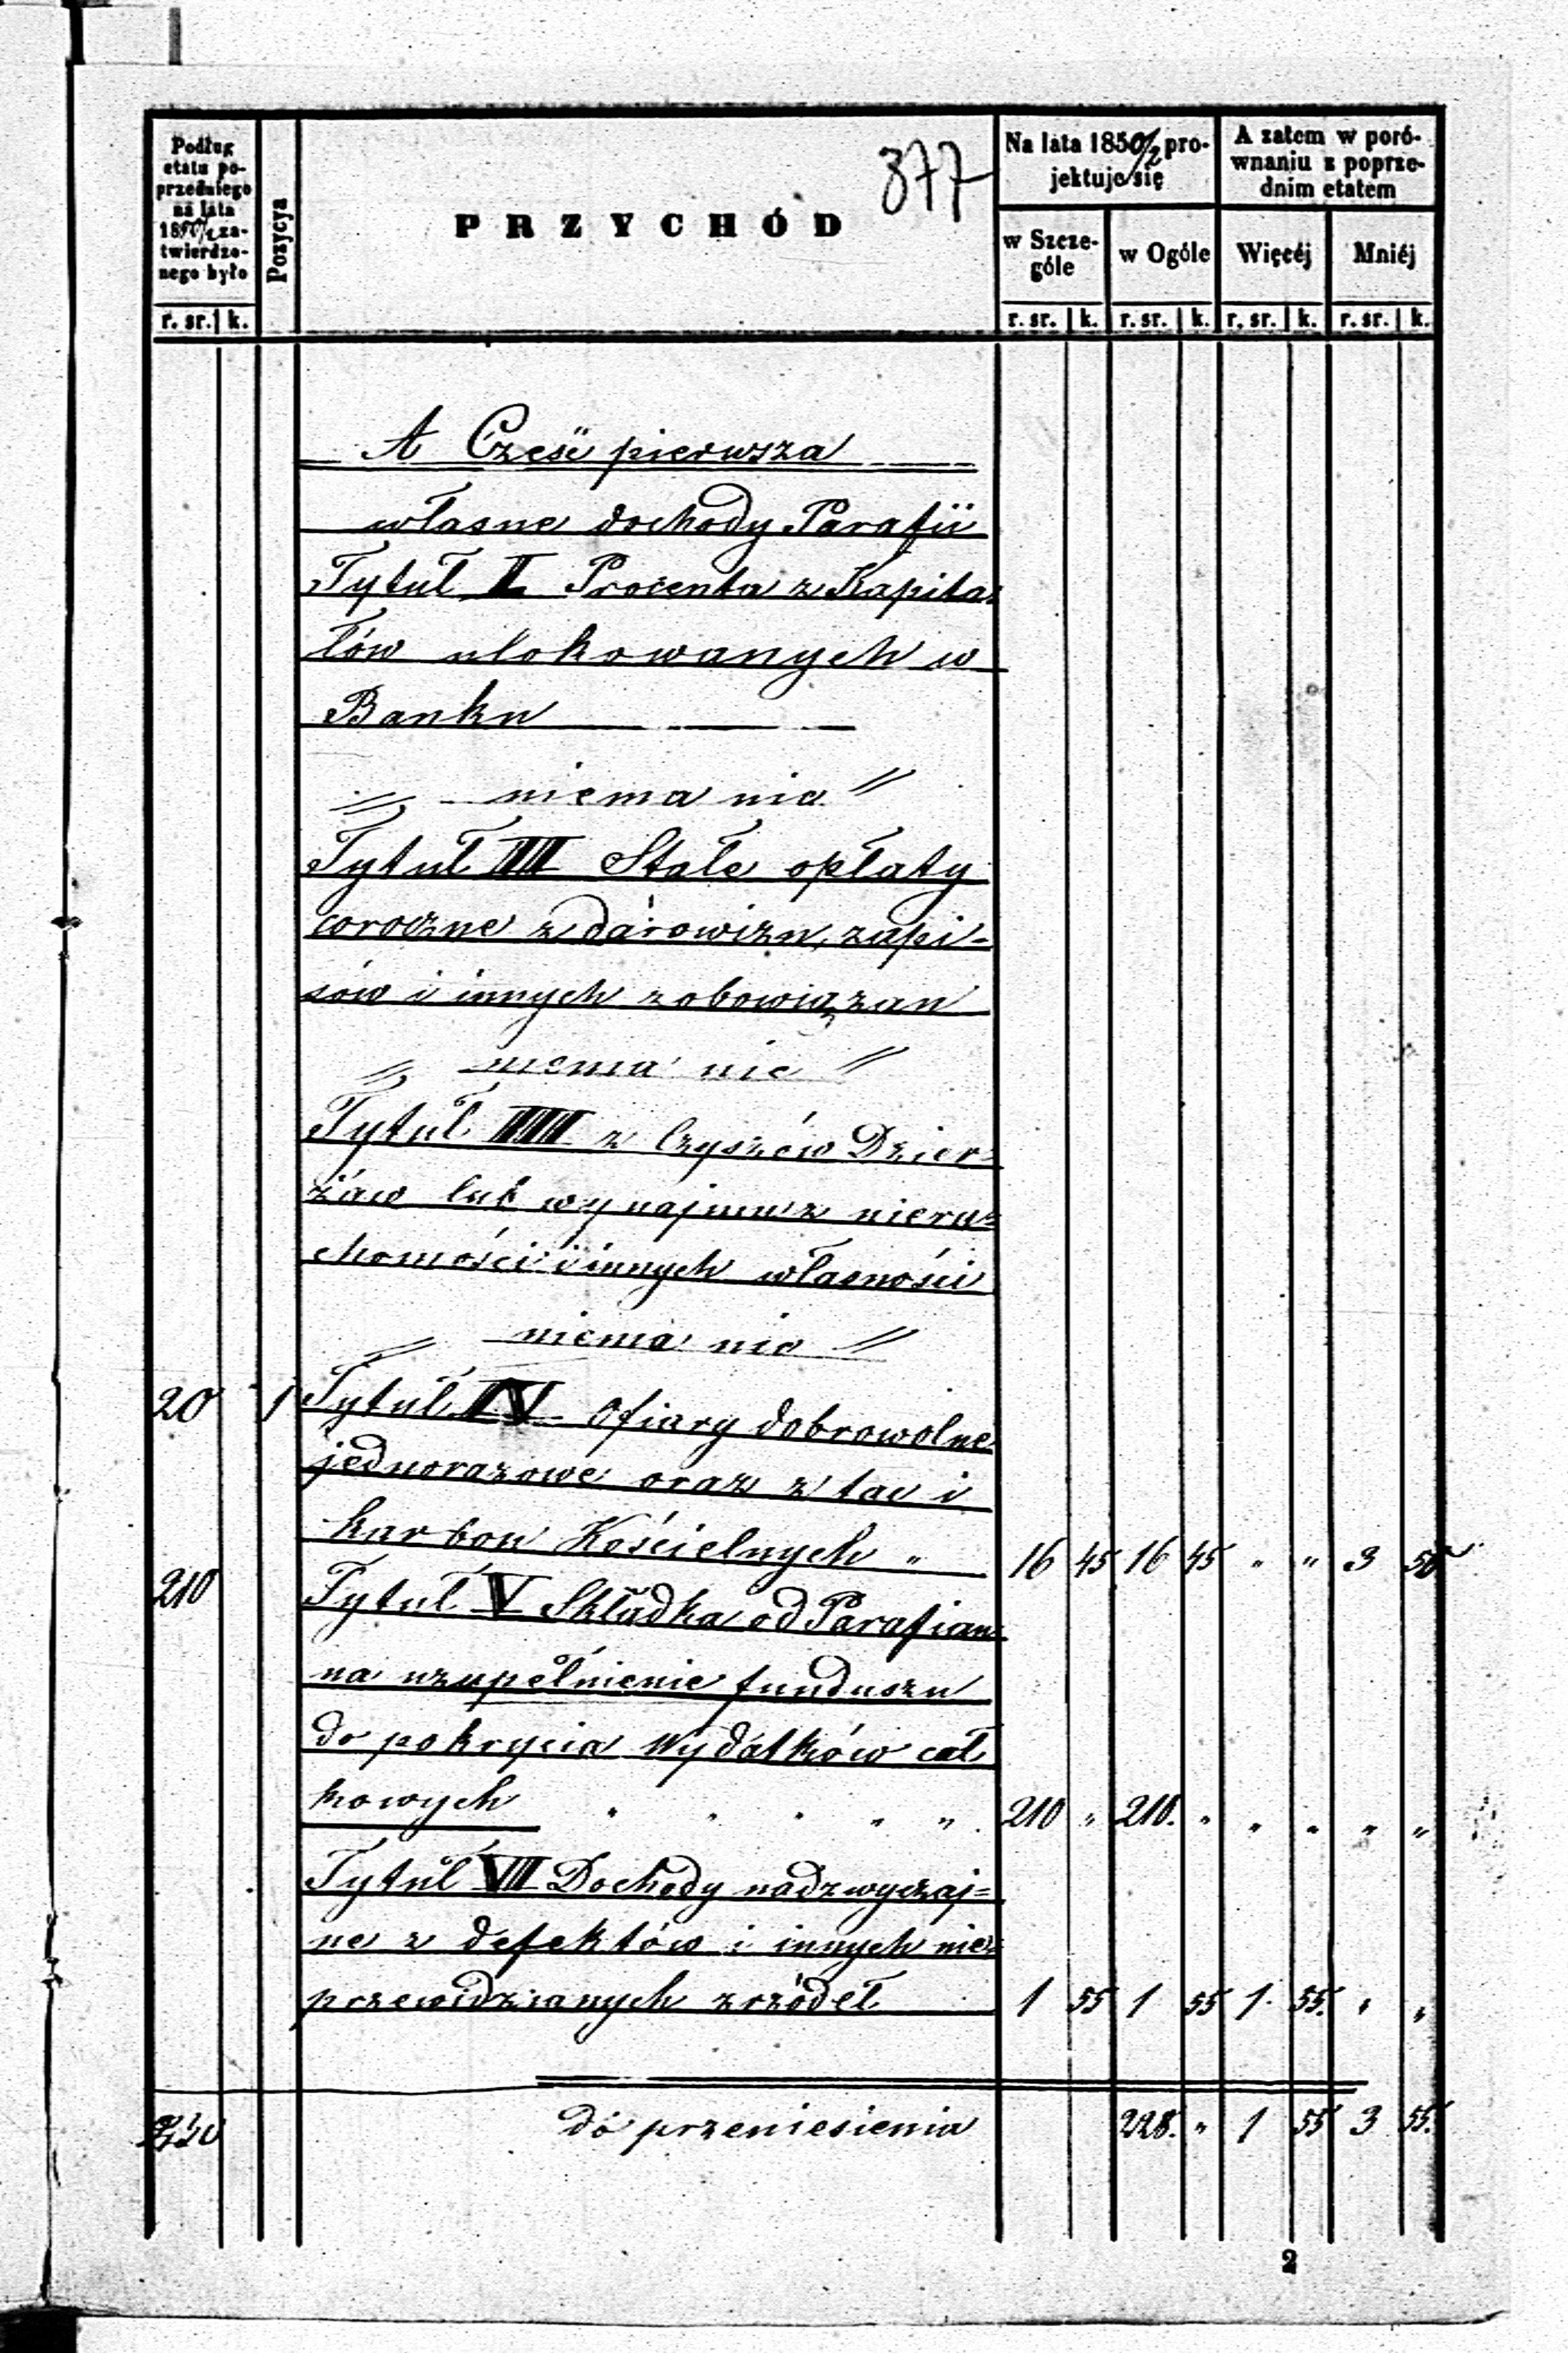 377
Podług etatu poprzedniego na lata 18 zatwierdzonego było
Pozycya
PRZYCHÓD
Na lata 1850/2 projektuje się
A zatem w porównaniu z poprzednim etatem
w Szczególe
w Ogóle
Więcéj
Mniéj
r. sr. k. r. sr. k. r. sr. k. r. sr. k. r. sr. k.
A Cześć pierwsza
własne dochody Parafii
Tytuł I Procenta z Kapita=
łów ulokowanych w
Banku
" niema nic "
Tytuł III Stałe opłaty
coroczne z darowizn, zapi-
sów i innych zobowiązan
" niema nic "
Tytuł IIII z Czyszów Dzier=
żaw lub wynajmu z nieru=
chomości i innych własności
" niema nic "
20 1 Tytuł IV Ofiary dobrowolne
jednorazowe oraz z tac i
karbon Kościelnych " 16 45 16 45 " " 3
210 Tytuł V Składka od Parafian
na uzupełnienie funduszu
do pokrycia Wydatków cał
kowych " " " " " 210 " 210. " " " " "
Tytuł VII Dochody nadzwyczaj=
ne z defektów i innych nie=
przewidzianych zrzódeł 1 55 1 55 1. 55. " "
do przeniesienia 228. " 1 55 3 55.
2